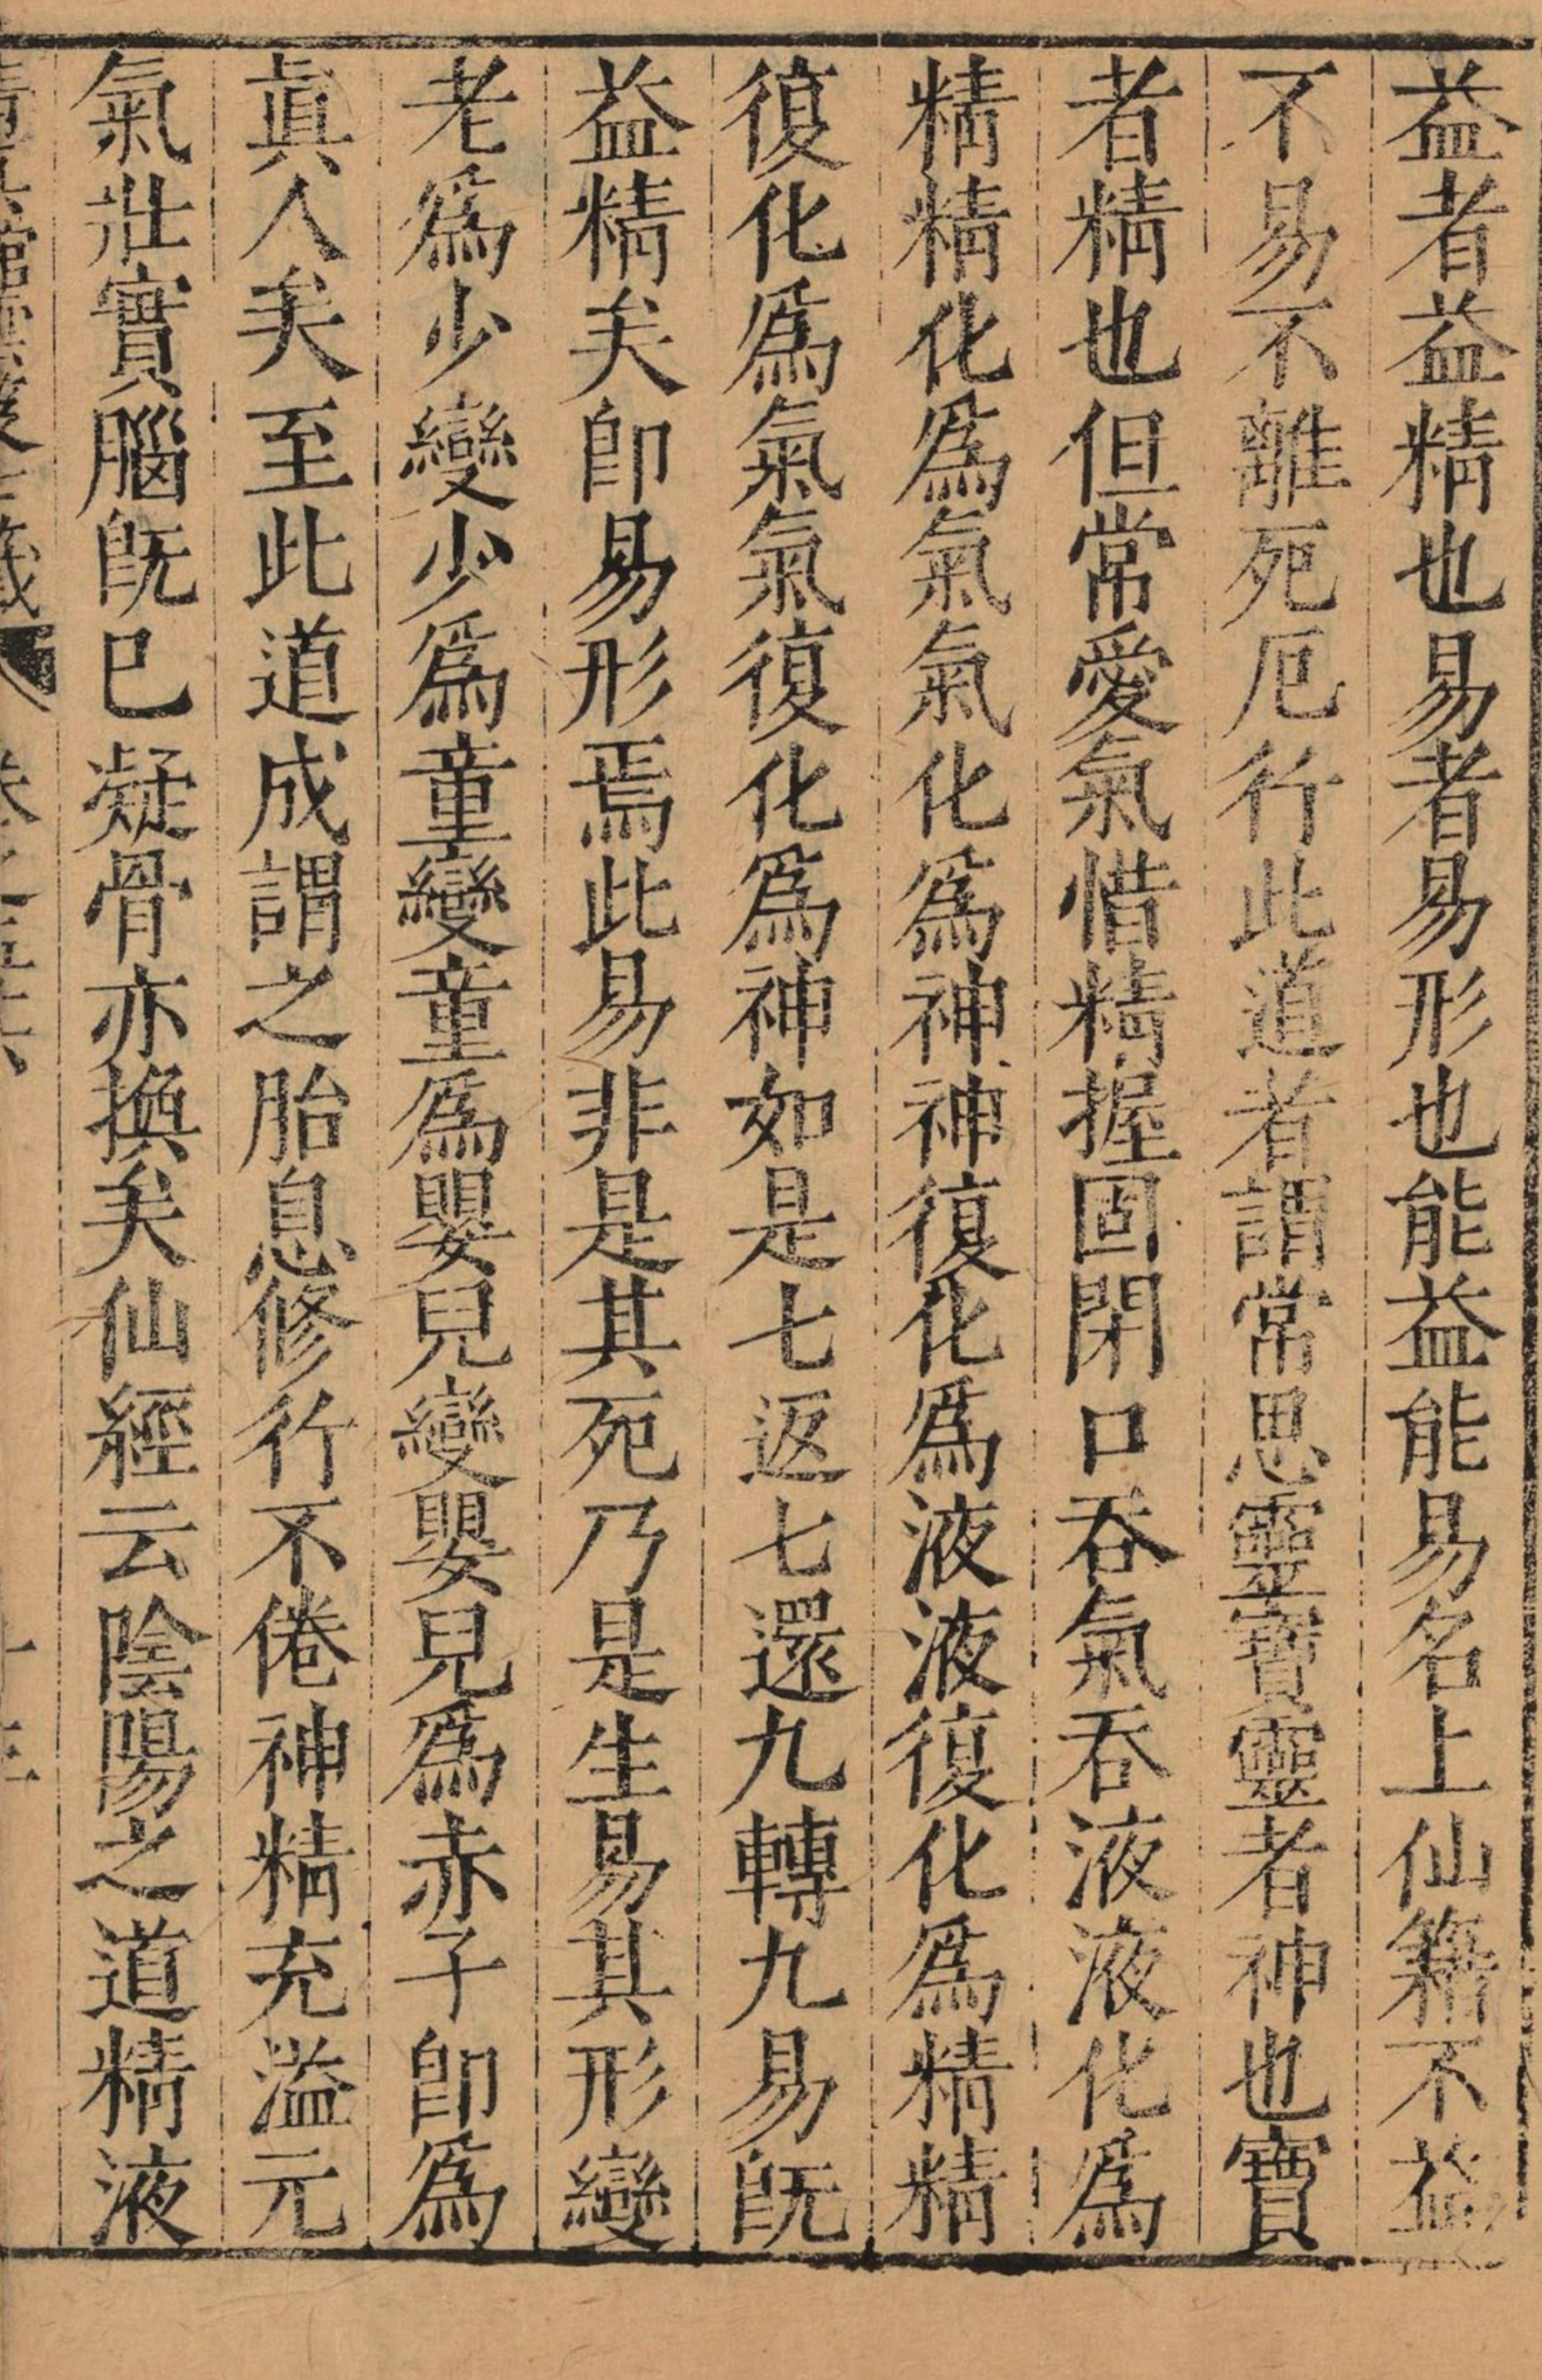 益者益精也易者易形也能益能易名上仙籍不益
不易不離死厄行此道者謂常思靈寶靈者神也寶
者精也但常愛氣惜精握固閉口吞氣吞液液化為
精精化為氣氣化為神神復化為液液復化為精精
復化為氣氣復化為神如是七返七還九轉九易既
益精矣卽易形焉此易非是其死乃是生易其形變
老為少變少為童變童為嬰兒變嬰兒為赤子卽為
眞人矣至此道成謂之胎息修行不倦神精充溢元
氣壯實腦既巳凝骨亦換矣仙經云陰陽之道精液